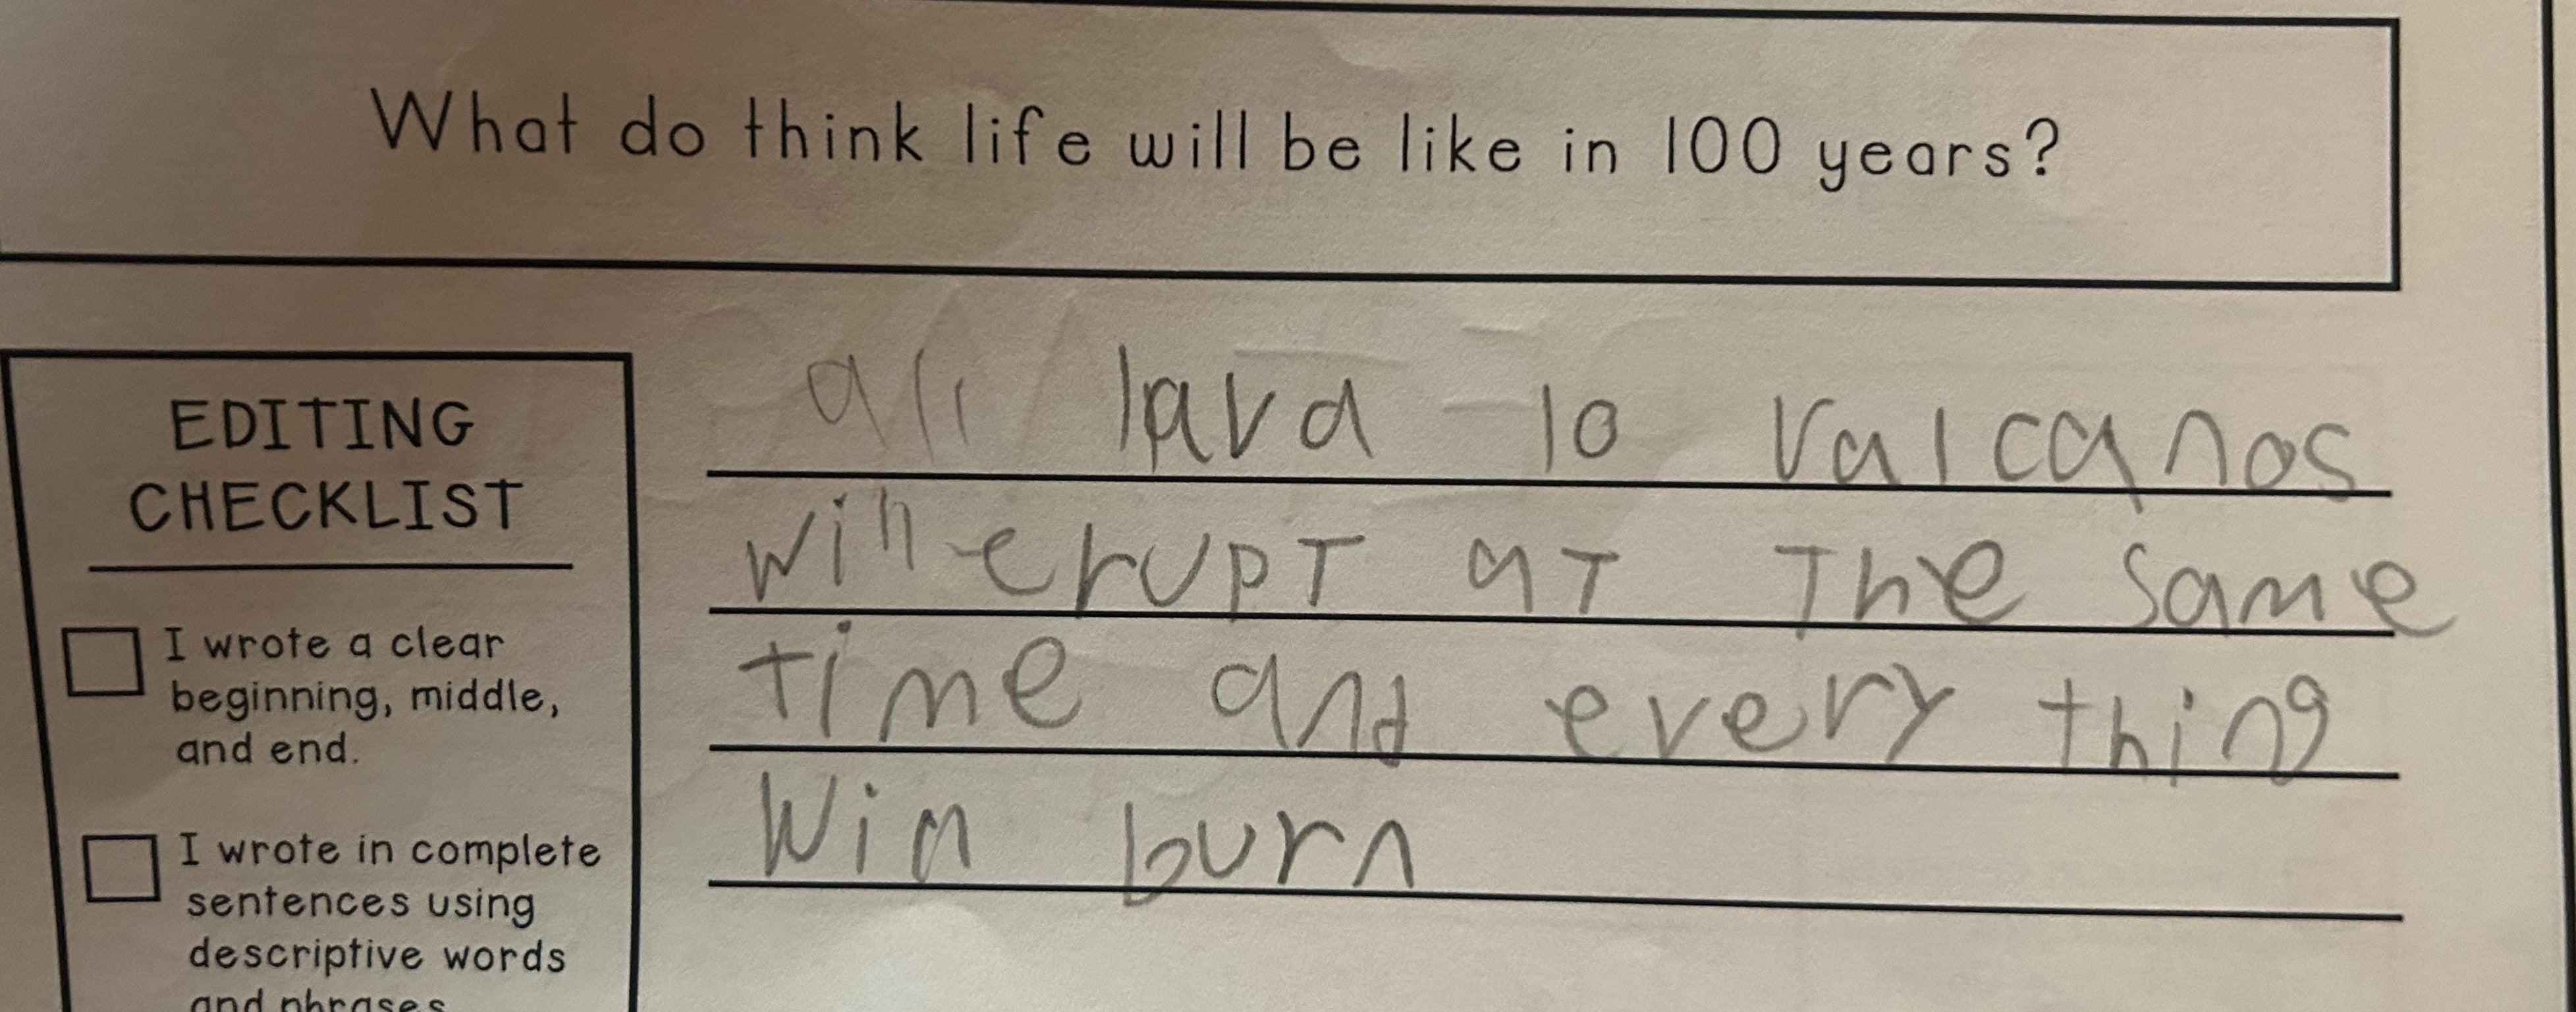 What do think life will be like in 100 years?
EDITING
CHECKLIST
I wrote a clear
beginning, middle,
and end.
I wrote in complete
sentences using
descriptive words
and phrases
all lava 10 valcanos
will erupt at the same
time and every thing
Will burn